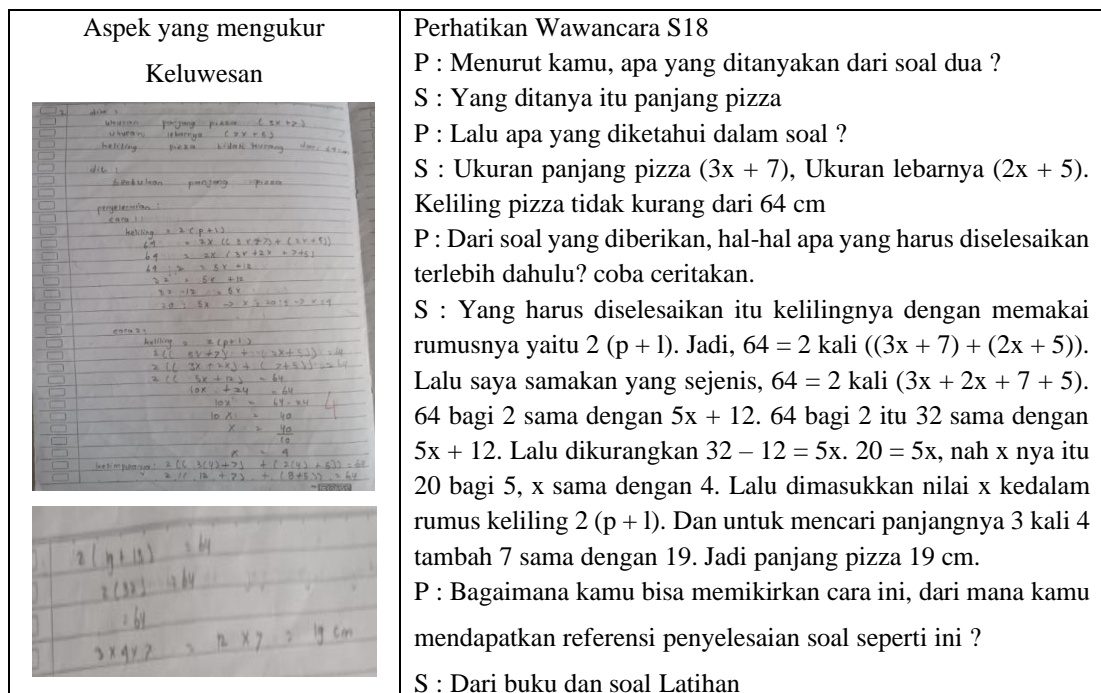 Aspek yang mengukur
Keluwesan
dik :
ukuran panjang pizza (3x + 7)
ukuran lebarnya (2x + 5)
keliling pizza tidak kurang dari 64 cm
dit :
tentukan panjang pizza
penyelesaian :
cara 1 :
keliling = 2 (p + l)
64 = 2x ((3x+7) + (2x+5))
64 = 2x (3x+2x + 7+5)
64 : 2 = 5x +12
32 = 5x +12
32 - 12 = 5x
20 : 5x → x = 20:5 → x = 4
cara 2 :
keliling = 2 (p+l)
2 (( 3x+7) + (2x+5)) = 64
2 (( 3x + 2x) + ( 7+5)) = 64
2 (( 5x + 12) = 64
10x + 24 = 64
10x = 64 - 24
10 x = 40
x = 40
10
x = 4
4
kesimpulannya : 2 (( 3(4)+7) + (2(4) + 5)) = 64
2 (( 12 + 7) + (8+5)) = 64
= 64
3 x 4 x 7 = 12 x 7 = 19 cm
Perhatikan Wawancara S18
P : Menurut kamu, apa yang ditanyakan dari soal dua ?
S : Yang ditanya itu panjang pizza
P : Lalu apa yang diketahui dalam soal ?
S : Ukuran panjang pizza (3x + 7), Ukuran lebarnya (2x + 5).
Keliling pizza tidak kurang dari 64 cm
P : Dari soal yang diberikan, hal-hal apa yang harus diselesaikan
terlebih dahulu? coba ceritakan.
S : Yang harus diselesaikan itu kelilingnya dengan memakai
rumusnya yaitu 2 (p + l). Jadi, 64 = 2 kali ((3x + 7) + (2x + 5)).
Lalu saya samakan yang sejenis, 64 = 2 kali (3x + 2x + 7 + 5).
64 bagi 2 sama dengan 5x + 12. 64 bagi 2 itu 32 sama dengan
5x + 12. Lalu dikurangkan 32 – 12 = 5x. 20 = 5x, nah x nya itu
20 bagi 5, x sama dengan 4. Lalu dimasukkan nilai x kedalam
rumus keliling 2 (p + l). Dan untuk mencari panjangnya 3 kali 4
tambah 7 sama dengan 19. Jadi panjang pizza 19 cm.
P : Bagaimana kamu bisa memikirkan cara ini, dari mana kamu
mendapatkan referensi penyelesaian soal seperti ini ?
S : Dari buku dan soal Latihan